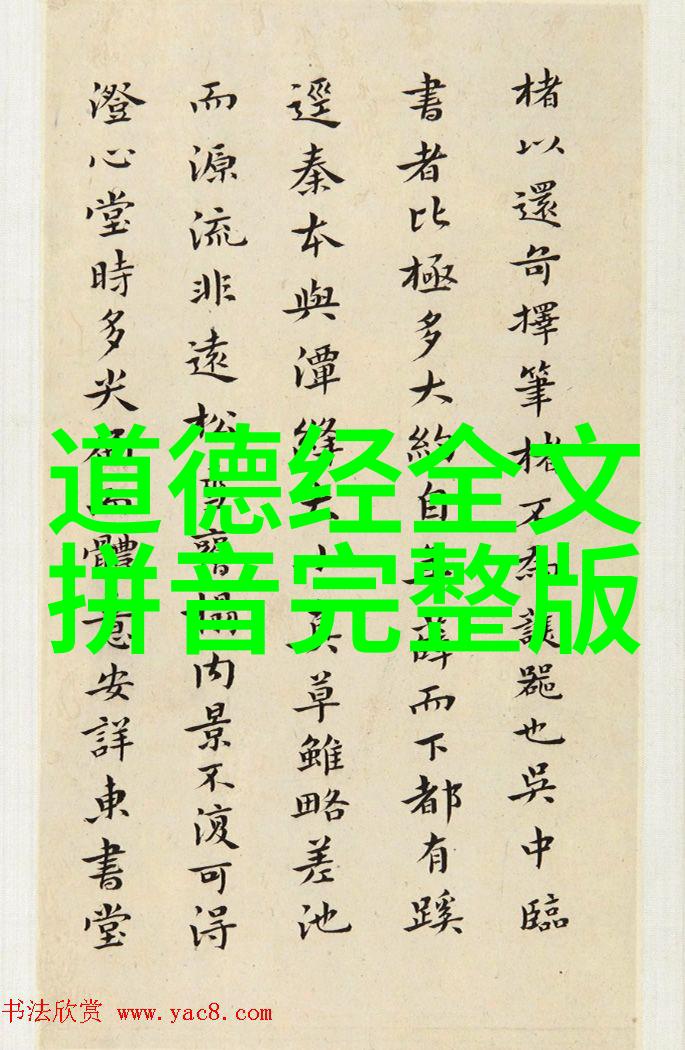 楮以還奇擇筆楮不為器也吳中臨
書者比極多大約自薛而下都有蹊
逕秦本與潭草雖略差池
而源流非遠松內景不復可得
澄心堂時多尖體意安詳東書堂
道德经全文
拼音完整版
书法欣赏 www.yac8.com